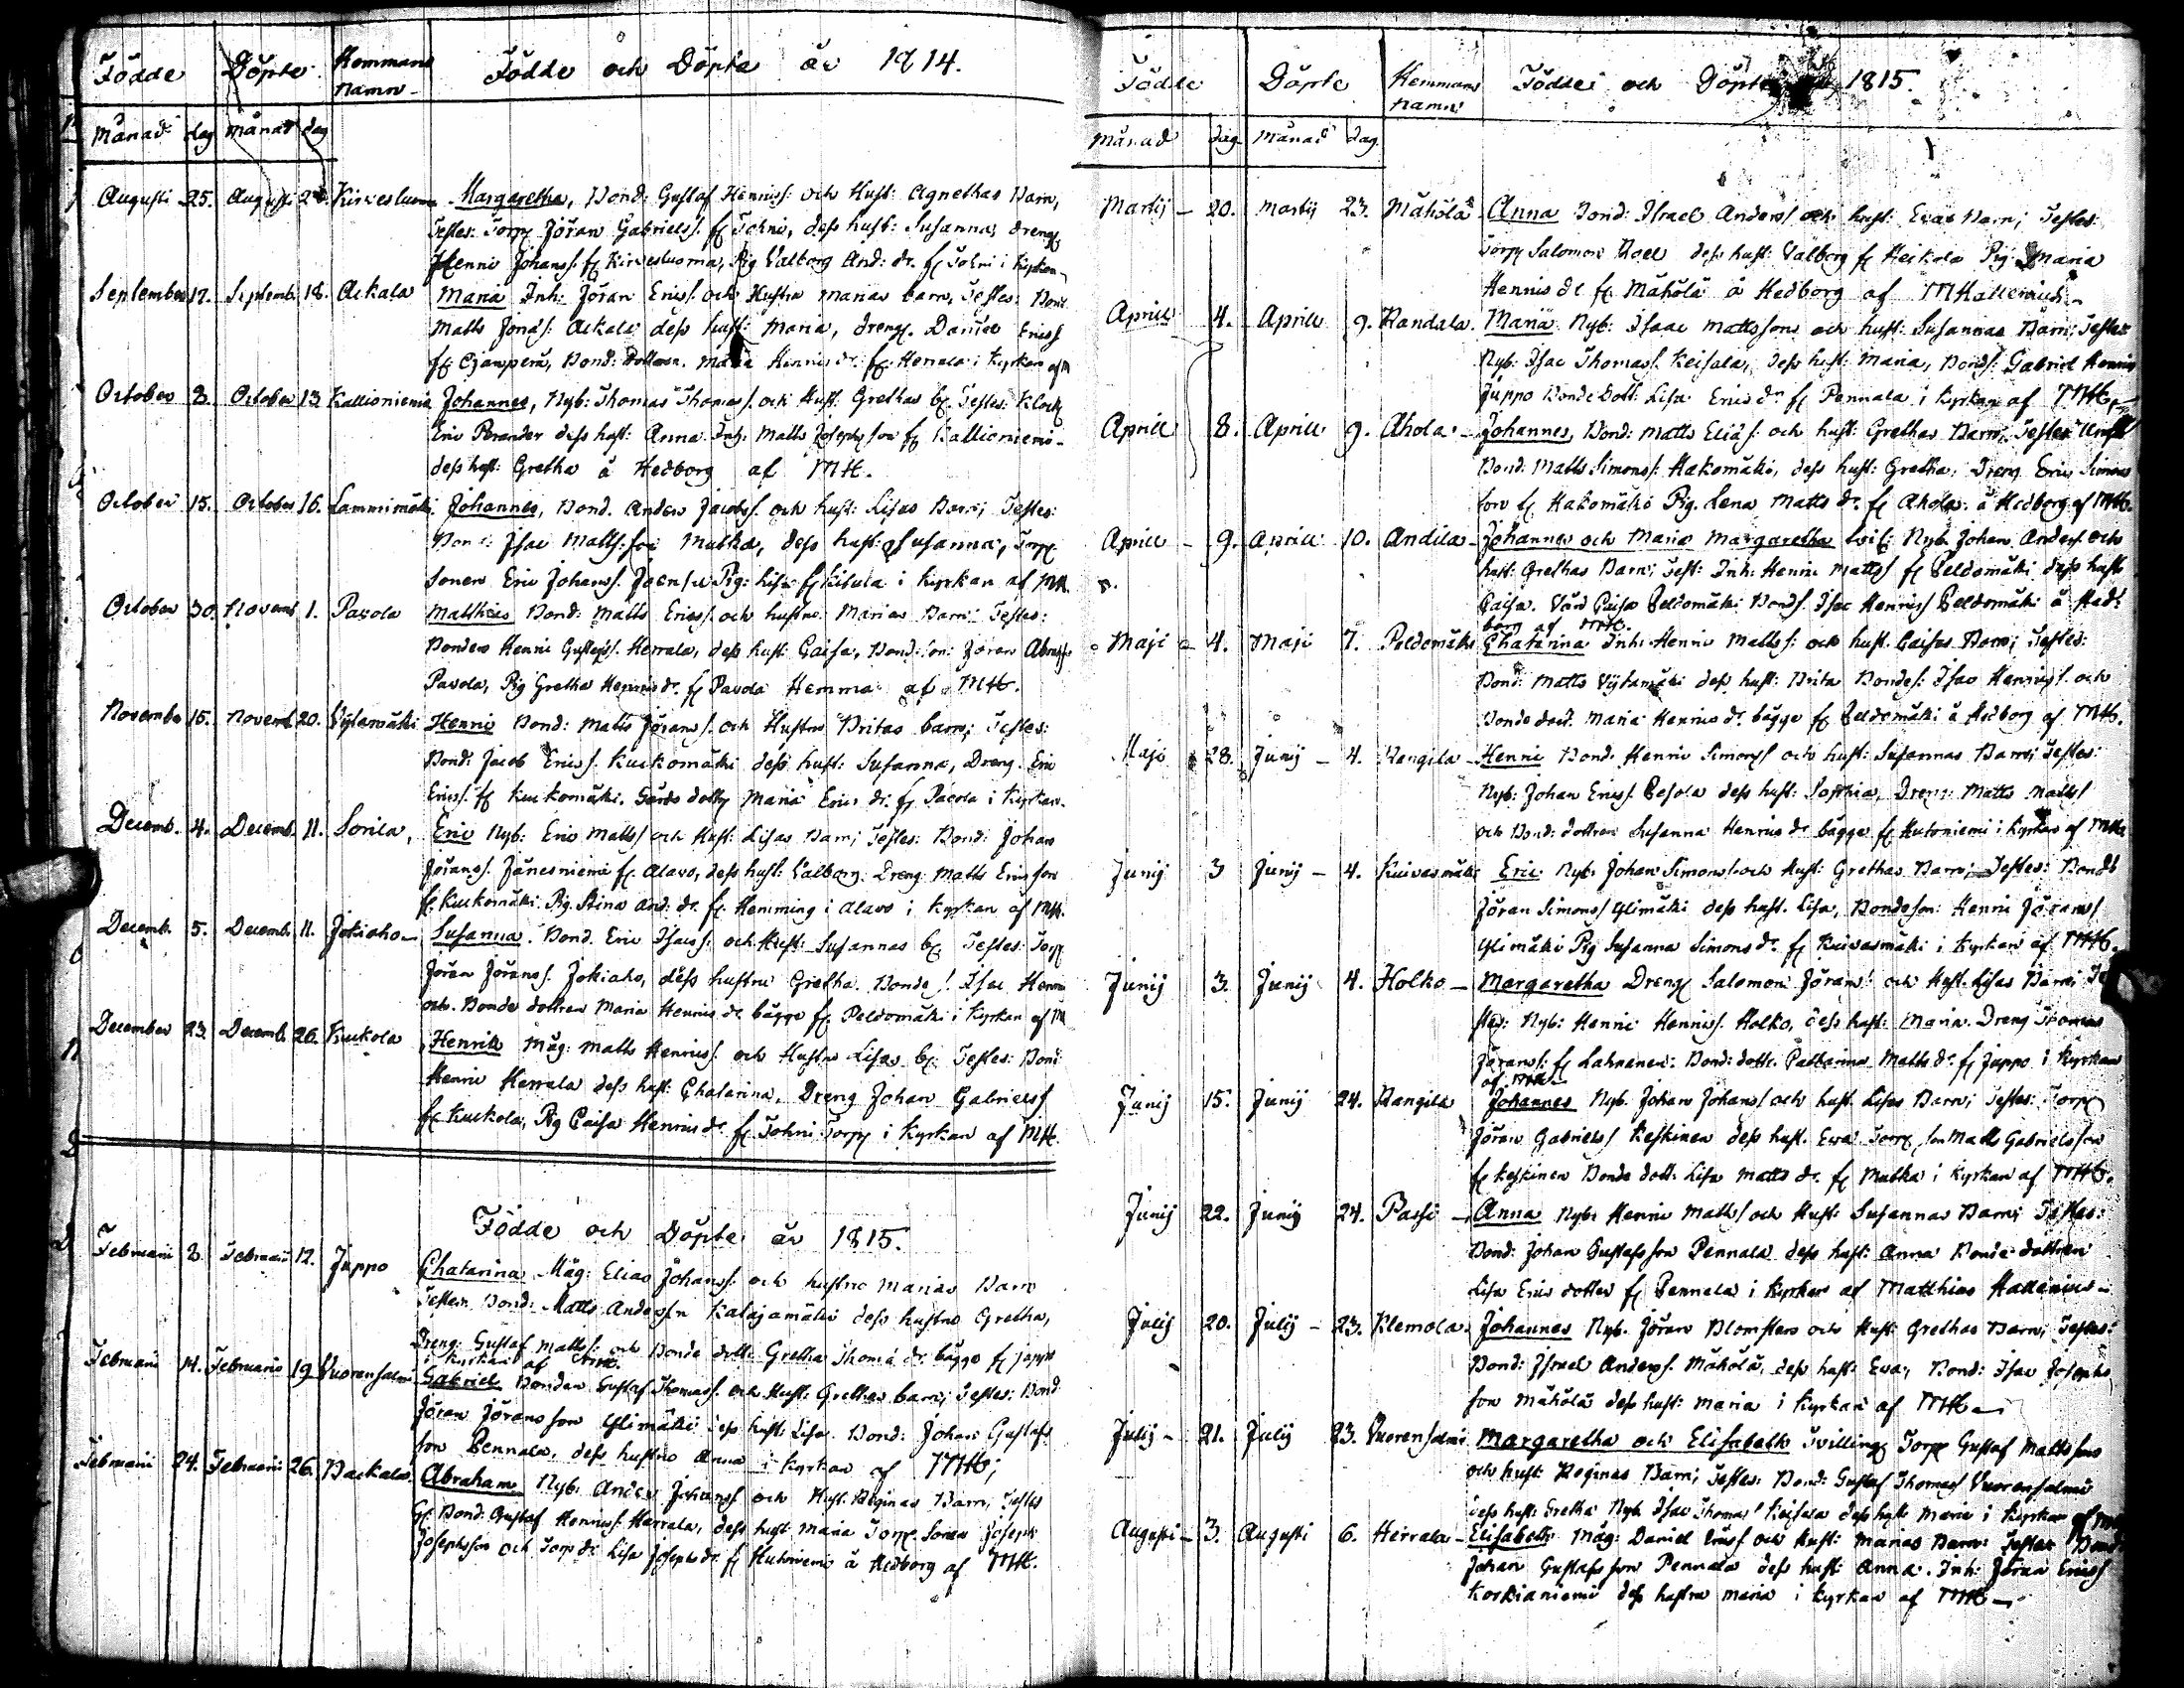 Födde Döpte Hemmans namn Födde och Döpta år 1814.
månad dag månad dag
Augusti 25. Augusti 28. Kirvesluoma Margaretha, Bond: Gustaf Henrics: och Hust: Agnethas Barn,
Testes: Torp Jöran Gabriels: fr Tohni, dess hust: Susanna, dreng
Henric Johans: fr Kirvesluoma, Pig Valborg And: dr. fr Tohni i Kyrkan
September 17. Septemb. 18. Ackala Maria Inh: Jöran Erics: och Hustru Marias barn, Testes: Bond
Matts Jonas: Ackala dess hust: Maria, dreng. Daniel Erics
fr Ojanperä, Bond: dottren Maria Henrics dr. fr Herrala i Kyrkan af M
October 8. October 13 Kallioniemi Johannes, Nyb: Thomas Thomas: och Hust: Grethas b. Testes: Klock
Eric Perander dess hust: Anna Inh. Matts Josephsson fr Kallioniemi
dess hust: Gretha å Hedborg af MH.
October 15. October 16. Lammimäki. Johannes, Bond. Anders Jacobs: och hust: Lisas Barn; Testes:
Bond: Isac Matts:son Mutka, dess hust: Susanna, Torp
sonen Eric Johans: Jaensu Pig: Lisa fr Kitula i kyrkan af MH.
October 30. Novemb 1. Pavola Matthias Bond: Matts Erics: och hustru Marias Barn Testes:
Bonden Henric Gustafs: Herrala, dess hust: Caisa, Bond: son: Jöran Abrahs:
Pavola, Pig Gretha Henrics dr. fr Pavola Hemma af MH.
November 15. Novemb 20. Vijtamäki Henric Bond: Matts Jörans: och Hustru Britas barn; Testes:
Bond: Jacob Erics: Kuckomäki dess hust: Susanna, Dreng. Eric
Erics: fr Kuckomäki. Gårds dottr Maria Erics dr. fr Pavola i Kyrkan.
Decemb. 4. Decemb. 11. Sorila, Eric Nyb: Eric Matts: och Hust: Lisas Barn; Testes: Bond: Johan
Jörans: Jänesniemi fr Alavo, dess hust: Valborg. Dreng: Matts Ericsson
fr Kuckomäki. Pig. Stina And: dr. fr Hemming i Alavo i Kyrkan af MH.
Decemb. 5. Decemb. 11. Jokiaho Susanna. Bond. Eric Isacs: och Hust: Susannas b. Testes: Torp
Jöran Jörans: Jokiaho, dess hustru Gretha. Bonde s. Isac Henr
och Bonde dottren Maria Henrics dr. bägge fr Peldomäki i Kyrkan af M
December 23. Decemb. 26. Kuckola Henrik Måg: Matts Henrics: och Hustru Lisas b. Testes: Bond
Henric Herrala dess hust: Chatarina, Dreng Johan Gabriels:
fr Kuckola, Pig Caisa Henrics dr. fr Tohni Torp i Kyrkan af MH.
Födde och Döpte år 1815.
Februarii 8. Februarii 12. Juppo Chatarina Måg: Elias Johans: och hustru Marias Barn
Testes: Bond: Matts Andersson Kalajamäki dess hustru Gretha,
Dreng: Gustaf Matts: och Bonde dottr: Gretha Thoma dr. bägge fr Juppo
i Kyrkan af MH.
Februarii 14. Februarii 19 Vuorensalmi Gabriel Bonden Gustaf Thomas: och Hust: Grethas barn; Testes: Bond
Jöran Jörans son Ylimäki dess hust: Lisa. Bond: Johan Gustafs
son Pennala, dess hustru Anna i Kyrkan af MH;
Februarii 24. Februarii 26. Backala. Abraham. Nyb: Anders Johans: och Hust: Reginas Barn; Testes
Bond: Gustaf Henrics: Herrala, dess hust Maria Torp: Sonen Joseph
Josephsson och Torp dr: Lisa Josephs dr. fr Hutoniemi å Hedborg af MH.
Födde Döpte Hemmans namn Födde och Döpte 1815.
Månad dag Månad dag.
Martij 20. Martij 23. Mähölä Anna Bond: Israel Anders: och hust: Evas Barn; Testes:
Torp Salomon Boel dess hust: Valborg fr Heikola Pig: Maria
Henrics dr fr Mähölä å Hedborg af MHallenius
Aprill 4. Aprill 9. Randala. Maria Nyb: Isaac Mattssons och hust: Susannas Barn; Testes
Nyb: Isac Thomas: Keisala, dess hust: Maria, Bonds: Gabriel Henrics
Juppo Bonde Dott: Lisa Erics dr. fr Pennala i Kyrkan af MH.
Aprill 8. Aprill 9. Ahola Johannes, Bond: Matts Elias: och hust: Grethas Barn; Testes
Bond: Matts Simons: Hakomäki, dess hust: Gretha, Dreng Eric Simons
son fr Hakomäki Pig. Lena Matts dr. fr Ahola: å Hedborg af MH.
Aprill 9. Aprill 10. Andila Johannes och Maria Margaretha Nyb. Johan Anders: och
hust: Grethas Barn; Test: Inh: Henric Matts: fr Peldomäki dess hust
Caisa. Caisa Peldomäki Bonds. Isac Henrics: Peldomäki å Hed
borg af MH.
Maji 4. Maji 7. Peldomäki Chatarina Inh: Henric Matts: och hust. Caisas Barn; Testes:
Bond: Matts Vijtamäki dess hust: Brita Bondes: Isac Henrics: och
Bonde dott. Maria Henrics dr. bägge fr Peldomäki å Hedborg af MH.
Maji 28. Junij 4. Rengila Henric Bond: Henric Simons: och hust: Susannas Barn; Testes:
Nyb: Johan Erics: Pesola dess hust: Sophia, Dreng: Matts Matts:
och Bond: dottren Susanna Henrics dr bägge fr Hutoniemi i Kyrkan af MH
Junij 3 Junij 4. Kuivasmäki Eric Nyb. Johan Simons: och Hust: Grethas Barn; Testes: Bonde
Jöran Simons: Ylimäki dess hust. Lisa, Bondeson: Henric Jörans:
Ylimäki Pig Susanna Simons dr. fr Kuivasmäki i Kyrkan af MH.
Junij 3. Junij 4. Holko Margaretha Dreng Salomon Jörans: och Hust: Lisas Barn; Te
stes: Nyb: Henric Henrics: Holko, dess hust: Maria. Dreng Thomas
Jörans: fr Lahnanen. Bond: dottr. Catharina Matts dr. fr Juppo i Kyrkan
af MH
Junij 15. Junij 24. Rangila Johannes Nyb. Johan Johans: och hust. Lisas Barn; Testes: Torp
Jöran Gabriels: Keskinen dess hust. Ewa Torp son Matts Gabrielsson
fr Keskinen Bonde dott: Lisa Matts dr. fr Mutka i Kyrkan af MH.
Junij 22. Junij 24. Passi Anna Nyb: Henric Matts: och Hust: Susannas Barn; Testes:
Bond: Johan Gustafsson Pennala dess hust: Anna Bonde dottren
Lisa Erics dotter fr Pennala i Kyrkan af Matthias Hallenius
Julij 20. Julij 23. Klemola. Johannes Nyb. Jöran Blomsters och Hust: Grethas Barn; Testes:
Bond: Israel Anders: Mähölä, dess hust: Ewa, Bond: Isac Josephs
son Mähölä dess hust: Maria i Kyrkan af MH
Julij 21. Julij 23. Vuorensalmi Margaretha och Elisabeth Tvilling Torp Gustaf Mattssons
och hust: Reginas Barn; Testes: Bond: Gustaf Thomas: Vuorensalmi
dess hust: Gretha Nyb Isac Thomas: Keisala dess hust: Maria i Kyrkan af MH
Augusti 3. Augusti 6. Herrala Elisabeth Måg: Daniel Erics: och Hust: Marias Barn: Testes Bond:
Johan Gustafsson Pennala dess hust: Anna. Inh: Jöran Erics:
Korkianiemi dess hustru Maria i Kyrkan af MH